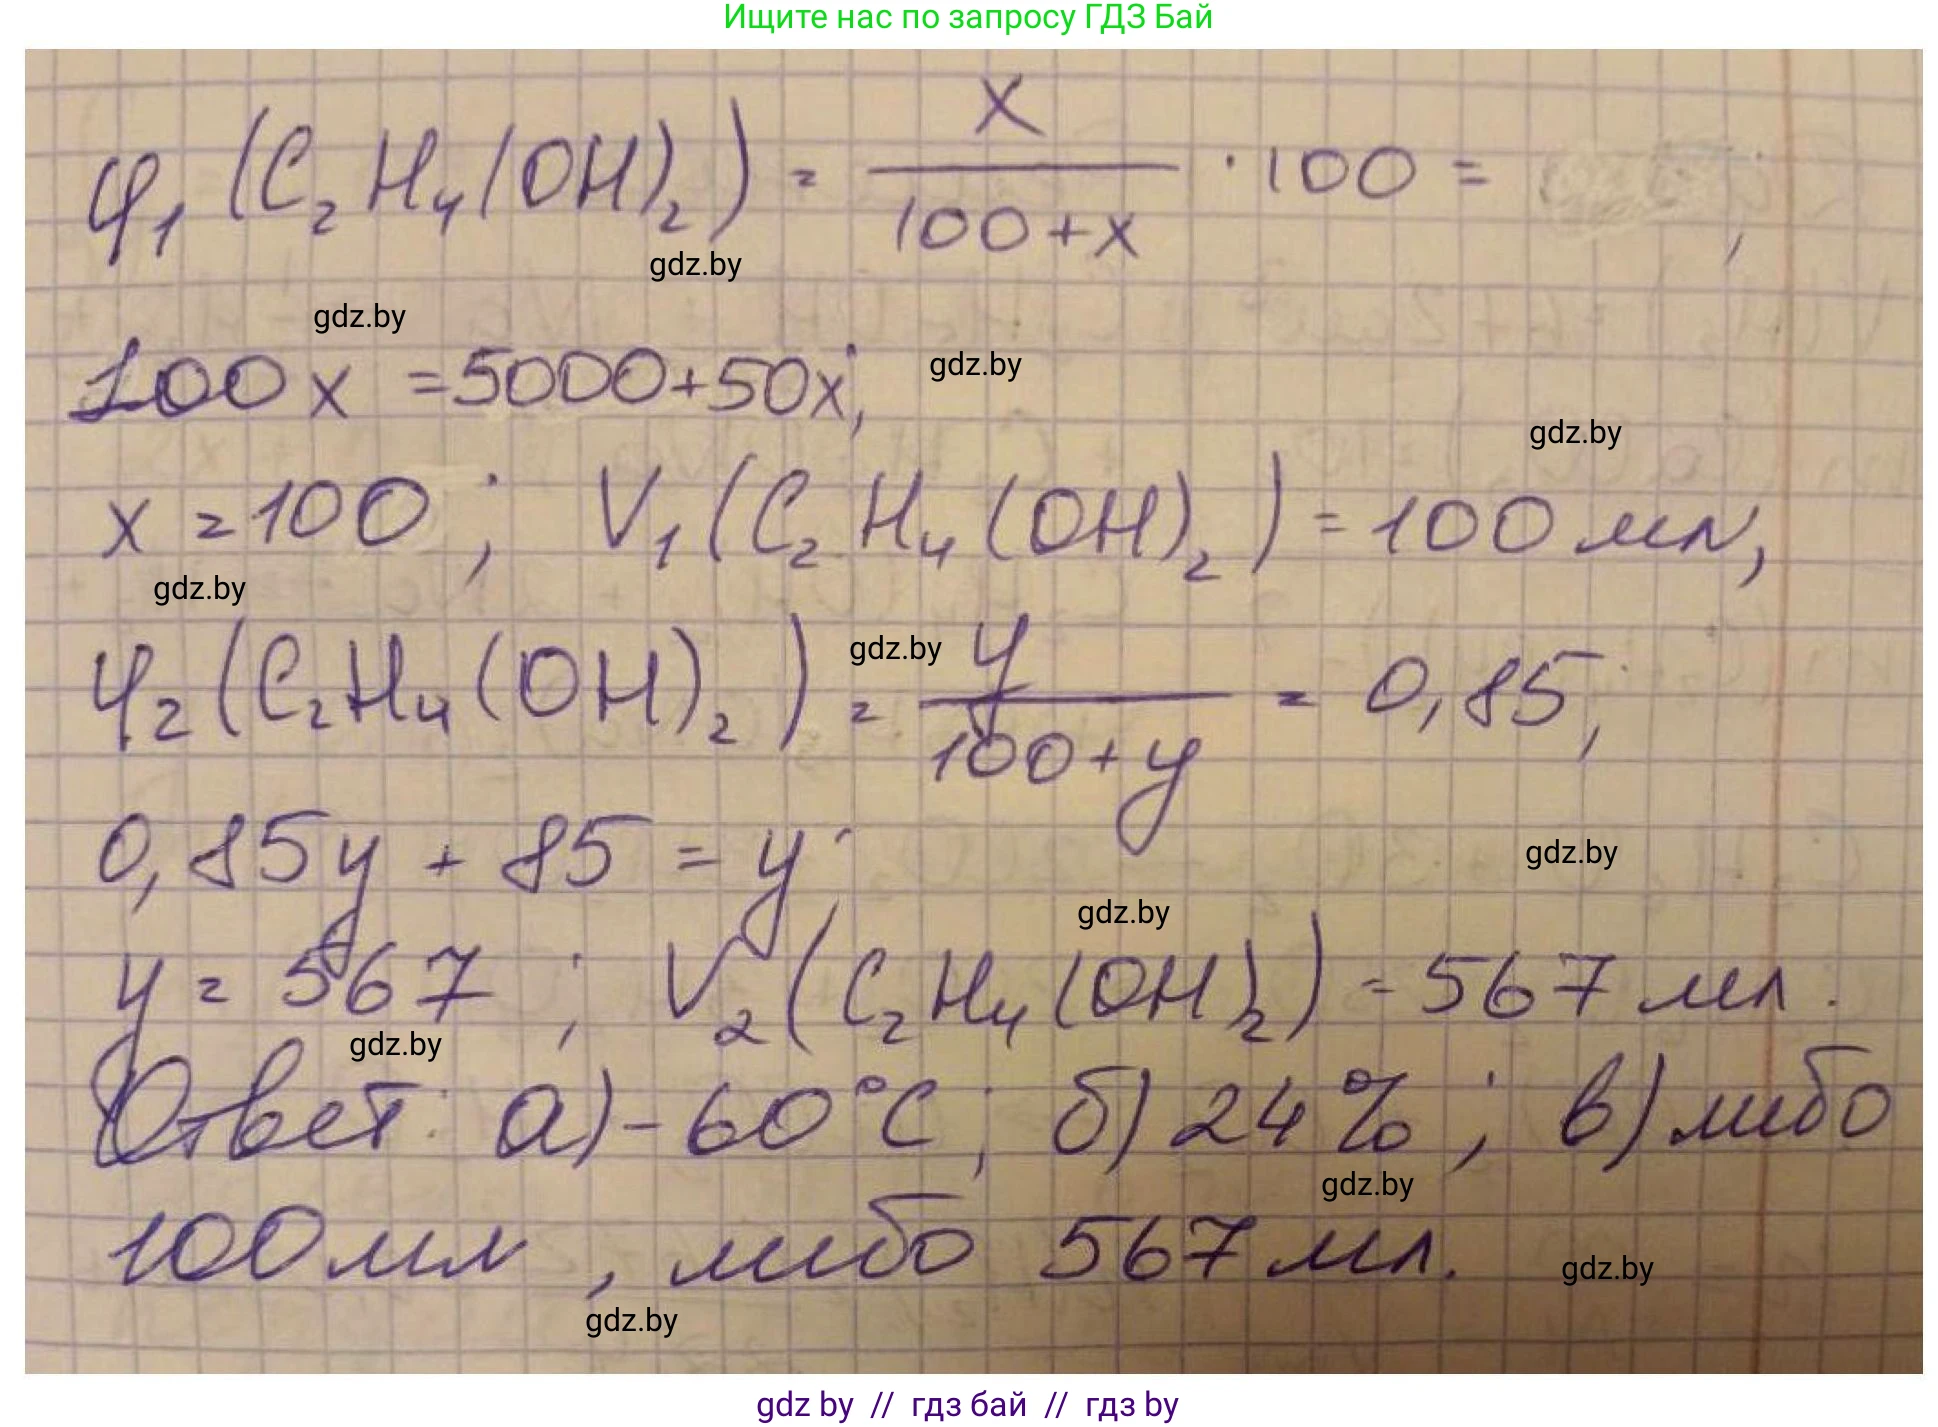 Ищите нас по запросу ГДЗ Бай
φ₁ (C₂H₄(OH)₂) = x / (100 + x) · 100 = ;
gdz.by
gdz.by
100x = 5000 + 50x;
gdz.by
gdz.by
x = 100; V₁(C₂H₄(OH)₂) = 100 мл,
gdz.by
gdz.by
φ₂(C₂H₄(OH)₂) = y / (100 + y) = 0,85;
0,85y + 85 = y;
gdz.by
gdz.by
y = 567; V₂(C₂H₄(OH)₂) = 567 мл.
gdz.by
Ответ: а) -60°C; б) 24%; в) либо
gdz.by
100 мл, либо 567 мл.
gdz.by
gdz.by
gdz by // гдз бай // гдз by